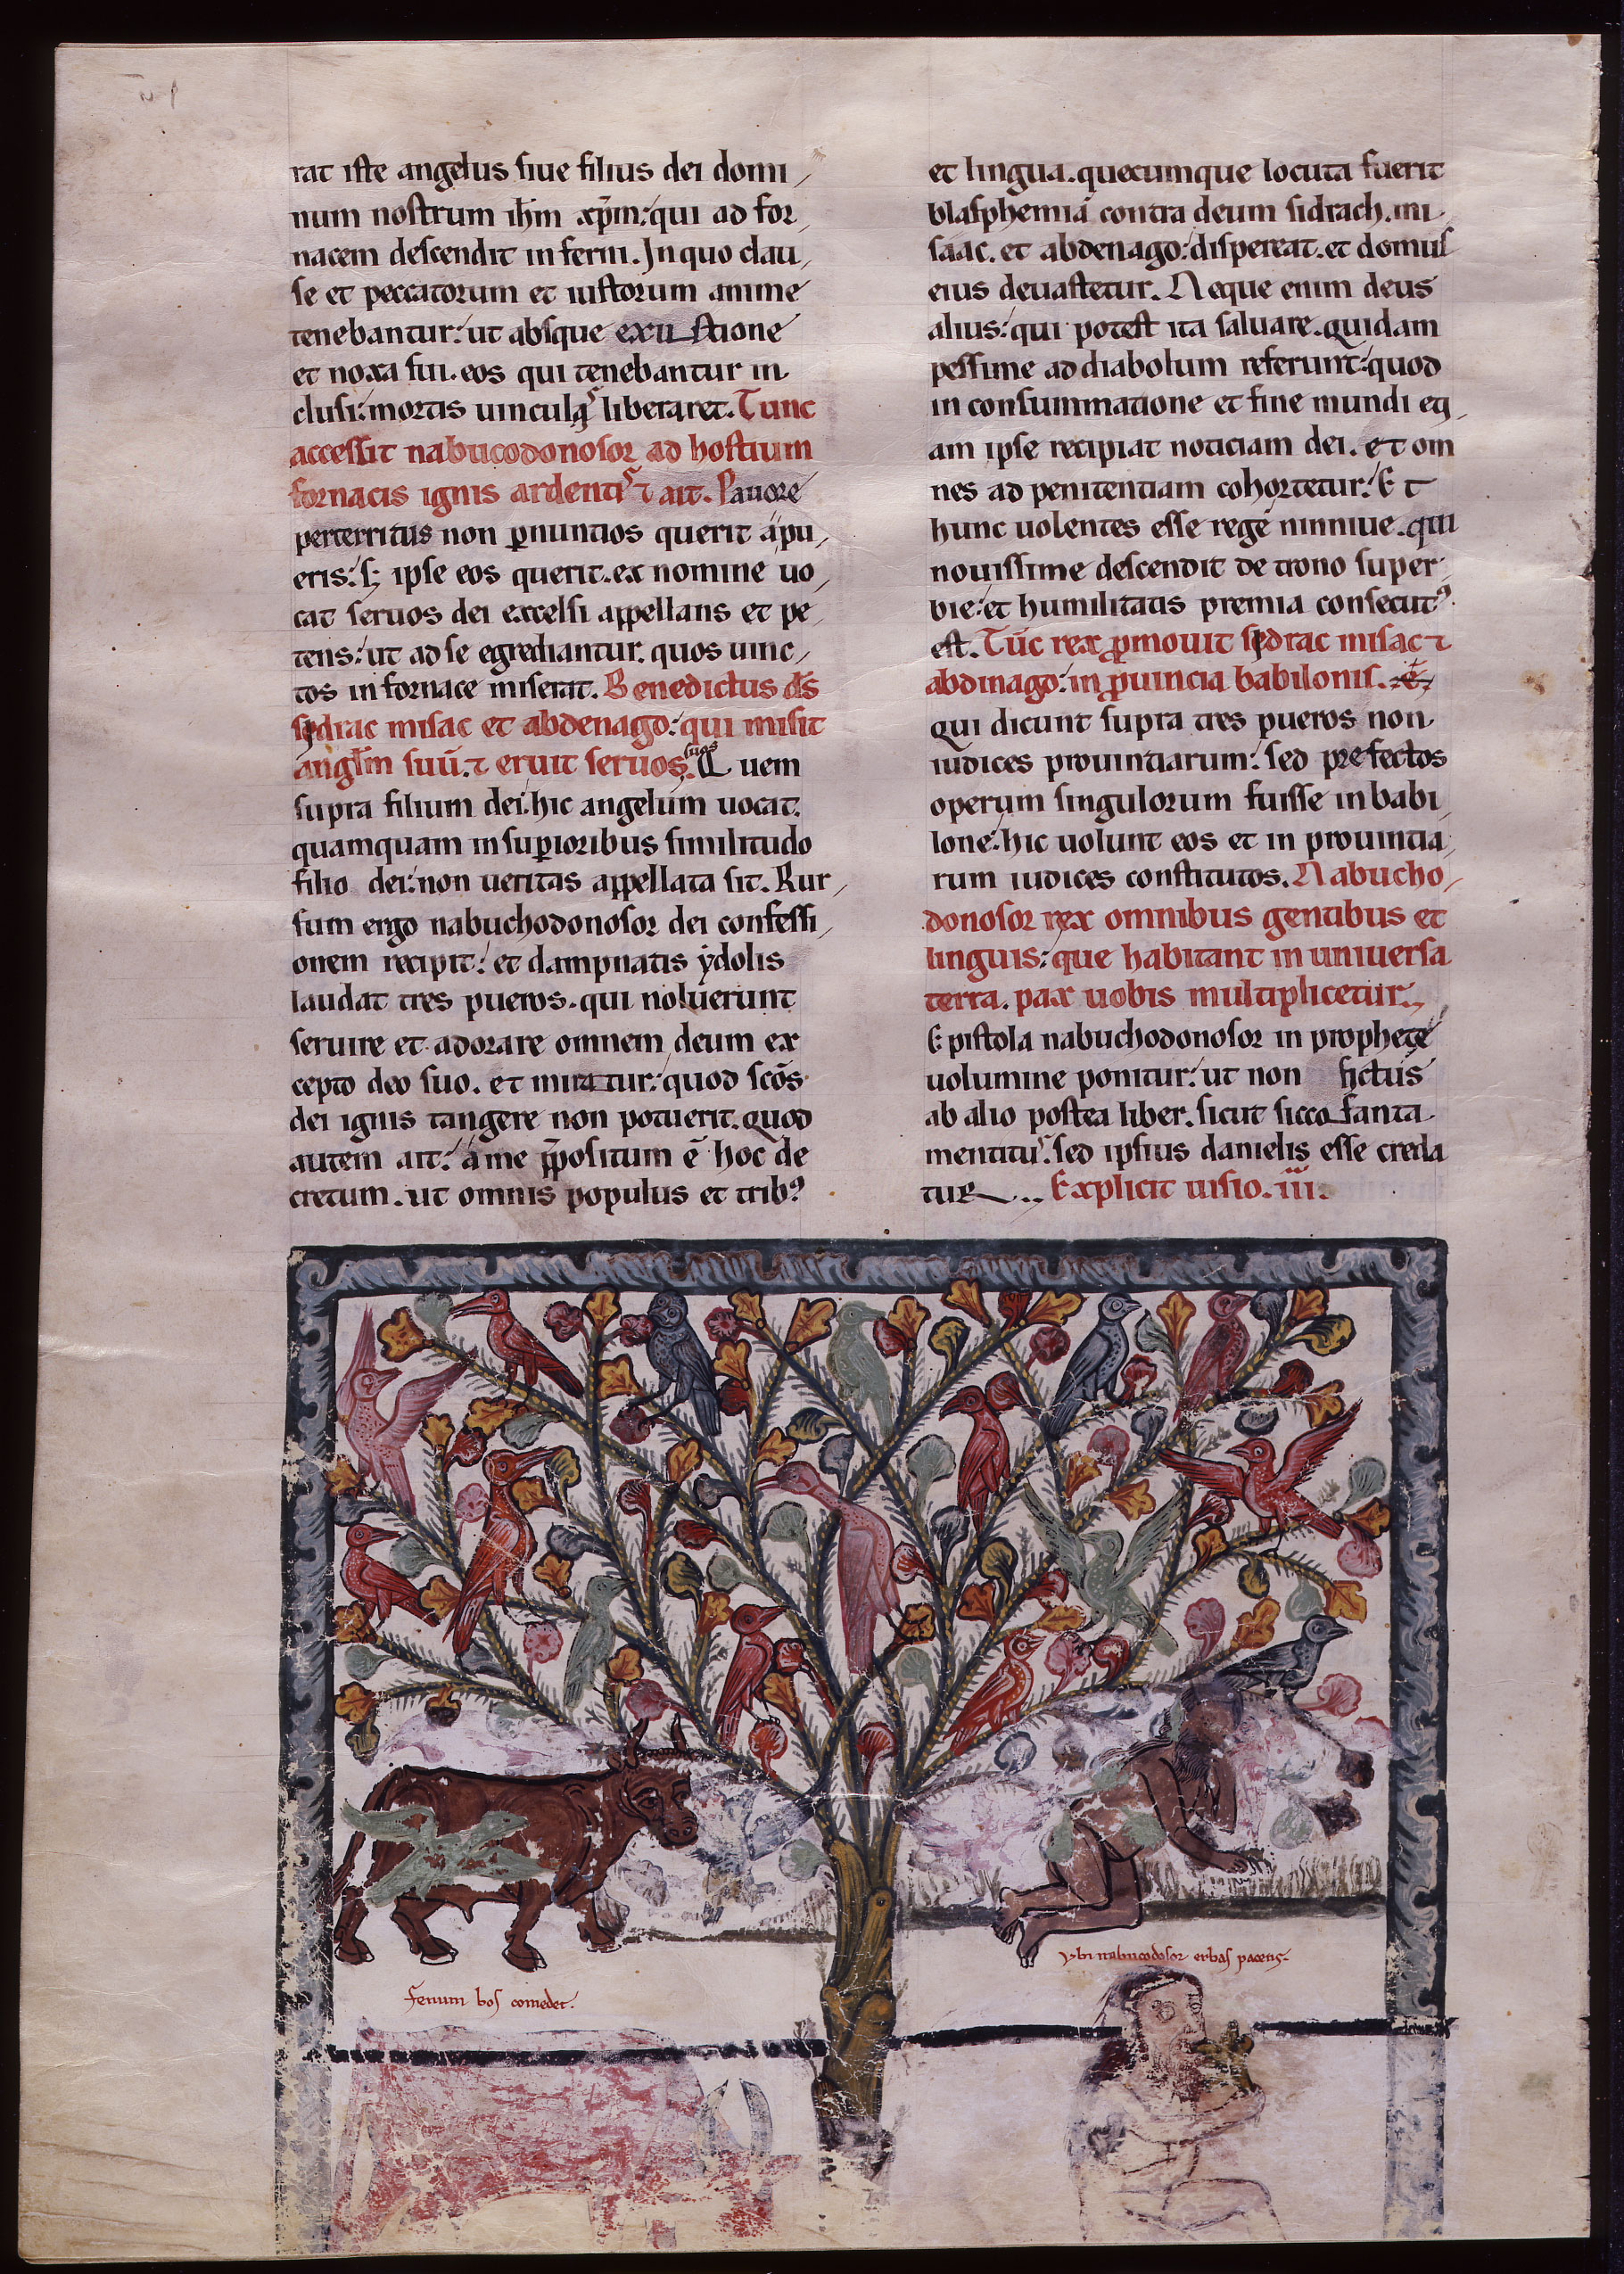 rat iste angelus siue filius dei domi
num nostrum ihm̄ xp̄m: qui ad for
nacem descendit inferni. In quo clau
se et peccatorum et iustorum anime
tenebantur: ut absque exustione
et noxa sui. eos qui tenebantur in
clusi: mortis uinculis liberaret. Tunc
accessit nabucodonosor ad hostium
fornacis ignis ardentis ⁊ ait. Pauore
perterritus non ꝑ nuntios querit a pu
eris: sꝫ ipse eos querit. ex nomine uo
cat seruos dei excelsi appellans et pe
tens: ut ad se egrediantur. quos uinc
tos in fornace miserat. Benedictus ds̄
sydrac misac et abdenago: qui misit
anglm̄ suū. ⁊ eruit seruos suos. Quem
supra filium dei: hic angelum uocat.
quamquam in suꝑioribus similitudo
filio dei: non ueritas appellata sit. Rur
sum ergo nabuchodonosor dei confessi
onem recipit: et dampnatis ẏdolis
laudat tres pueros. qui noluerunt
seruire et adorare omnem deum ex
cepto deo suo. et miratur: quod scōs
dei ignis tangere non potuerit. quod
autem ait: a me p̄positum ē hoc de
cretum. ut omnis populus et tribꝰ
et lingua. quecumque locuta fuerit
blasphemiā contra deum sidrach. mi
saac. et abdenago: dispereat. et domus
eius deuastetur. Neque enim deus
alius: qui potest ita saluare. quidam
pessime ad diabolum referunt: quod
in consummatione et fine mundi eti
am ipse recipiat noticiam dei. et om
nes ad penitentiam cohortetur: Et
hunc uolentes esse regē ninniue. qui
nouissime descendit de trono super
bie: et humilitatis premia consecutꝰ
est. Tūc rex ꝓmouit sydrac misac ⁊
abdinago: in ꝓuincia babilonis.
qui dicunt supra tres pueros non
iudices prouintiarum: sed prefectos
operum singulorum fuisse in babi
lone: hic uolunt eos et in prouintia
rum iudices constitutos. Nabucho
donosor rex omnibus gentibus et
linguis: que habitant in uniuersa
terra. pax uobis multiplicetur.
Epistola nabuchodonosor in prophetę
uolumine ponitur: ut non fictus
ab alio postea liber. sicut sicofanta
mentitur. sed ipsius danielis esse creda
tur. Explicit uisio. iii.
ybi nabucodosor erbas pacens.
Fenum bos comedet.